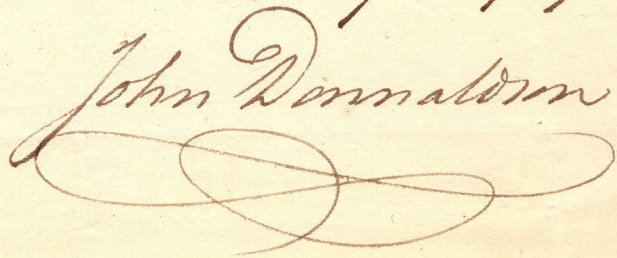 John Donnaldson